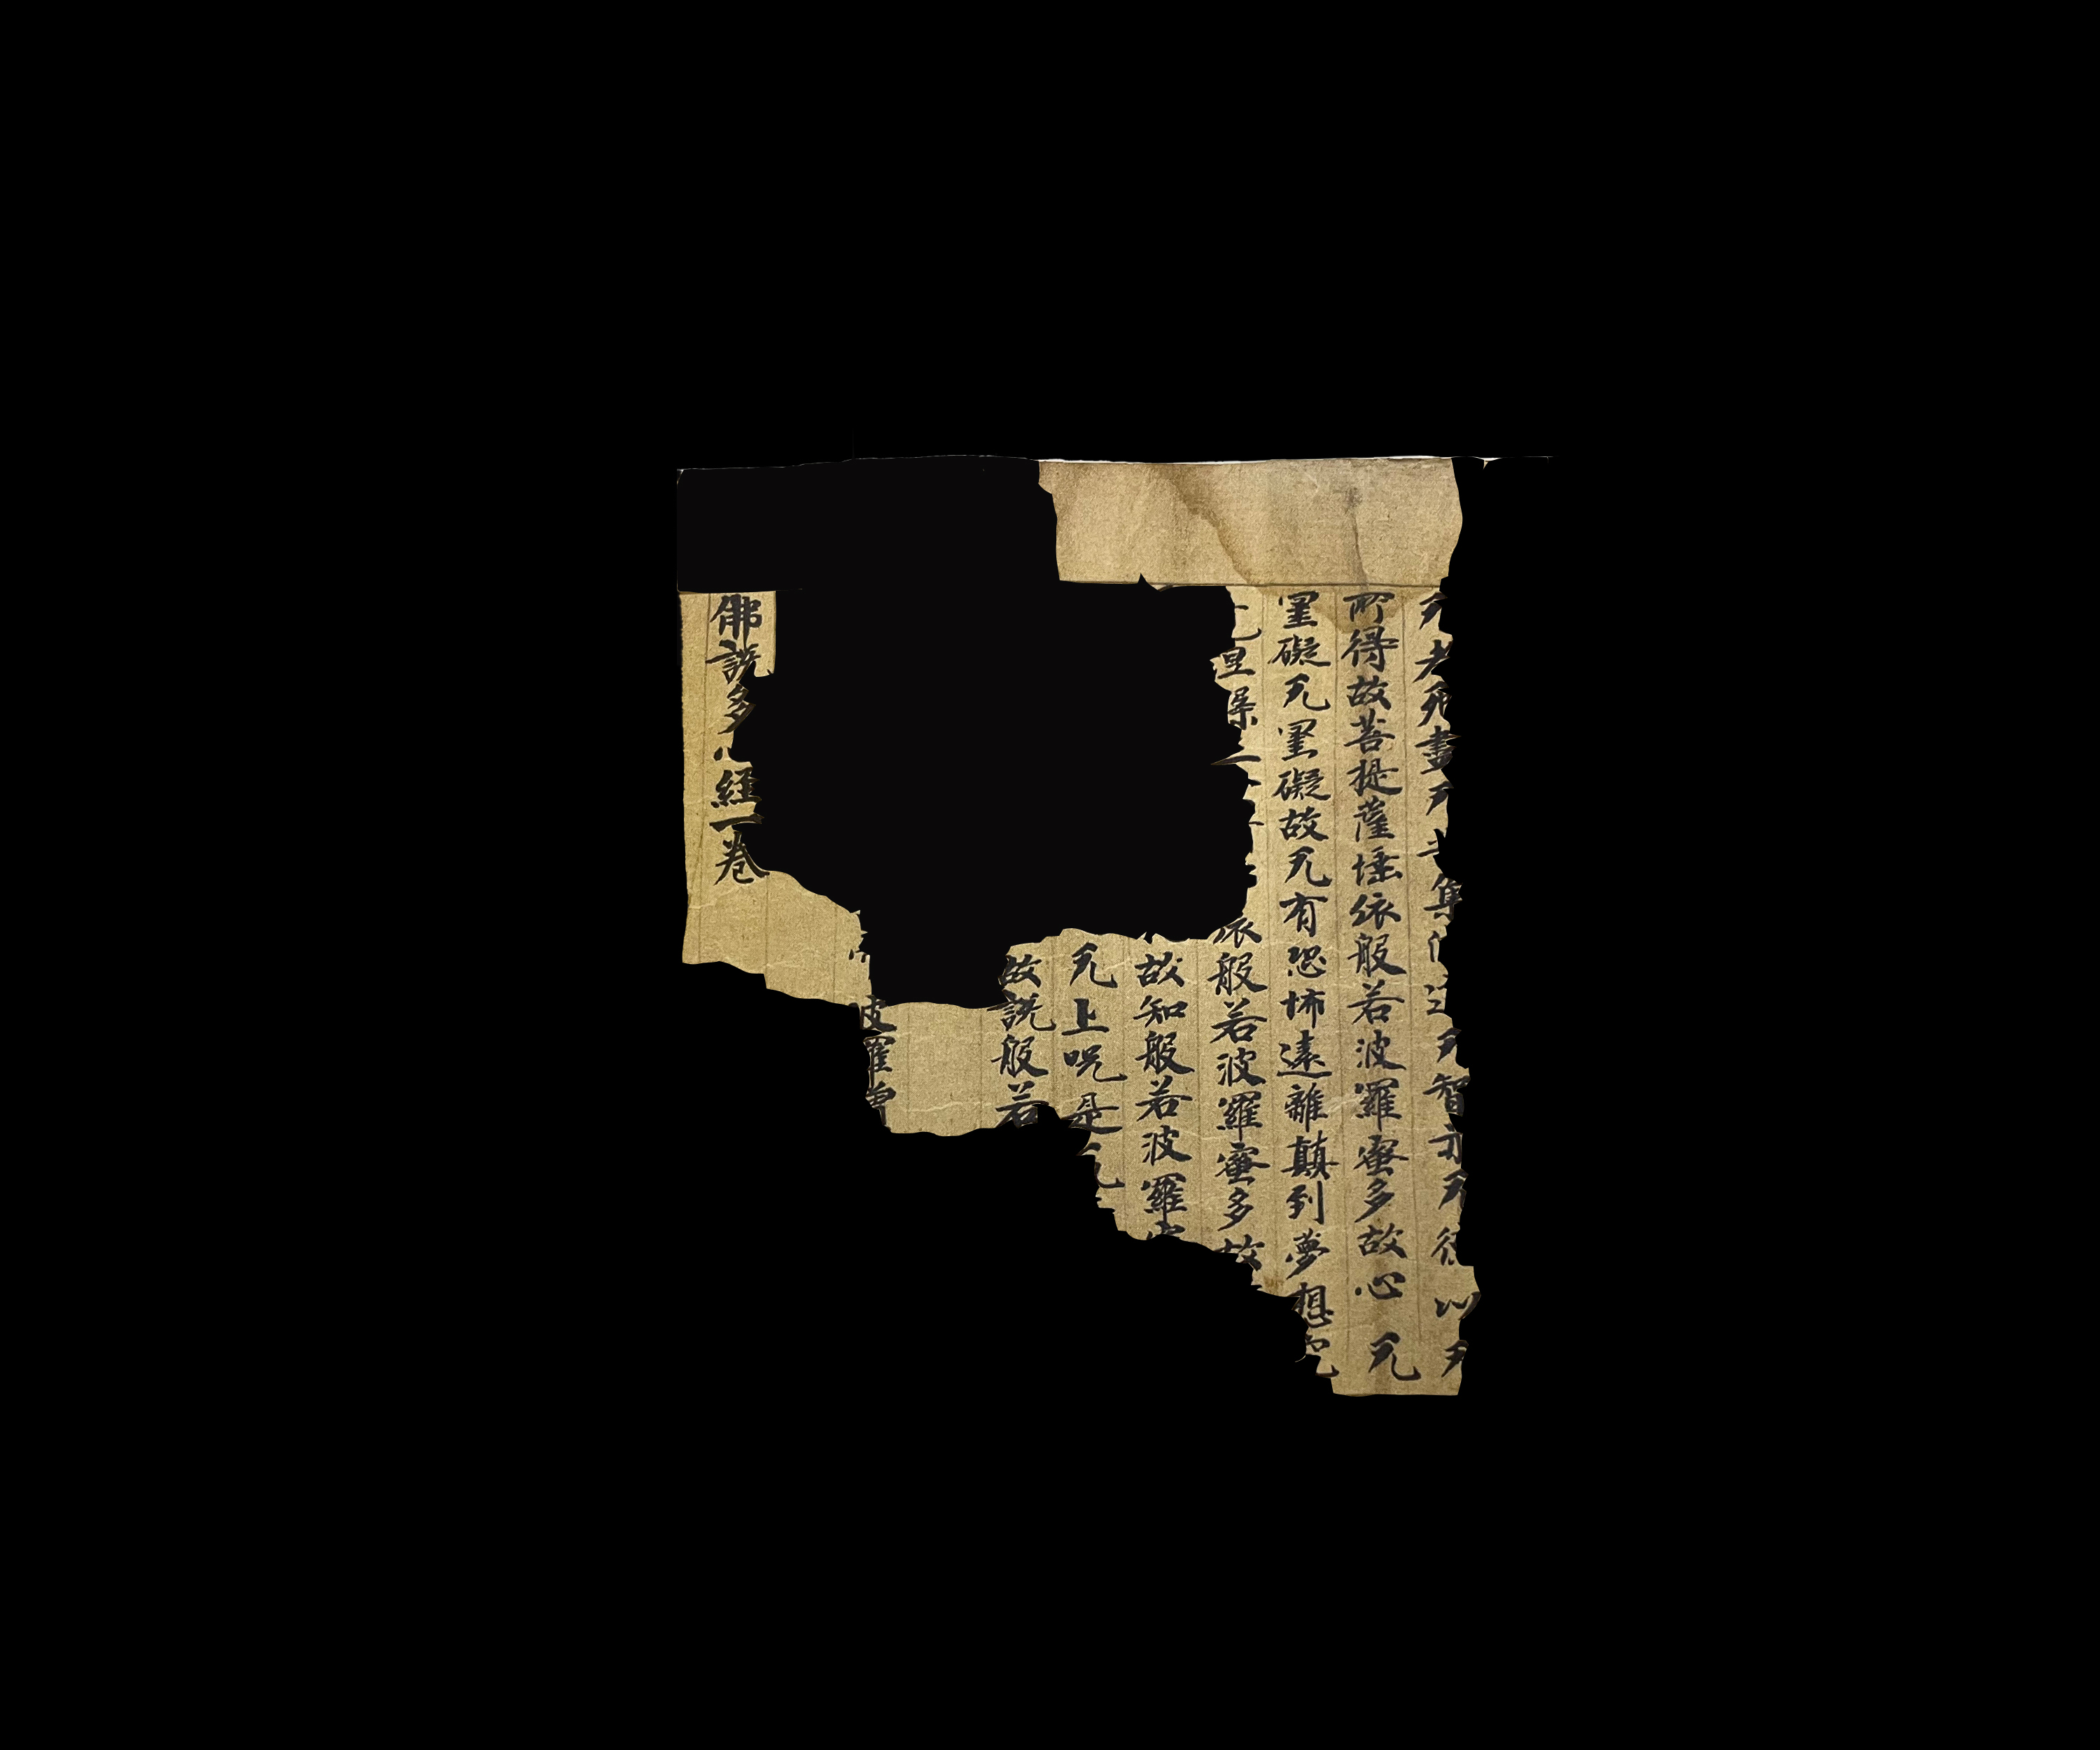 无老死盡无苦集滅道无智亦无得以无
所得故菩提薩埵依般若波羅蜜多故心无
罣礙无罣礙故无有恐怖遠離顛到夢想究
依般若波羅蜜多故
故知般若波羅
无上呪是
故說般若
波羅
佛說多心經一卷